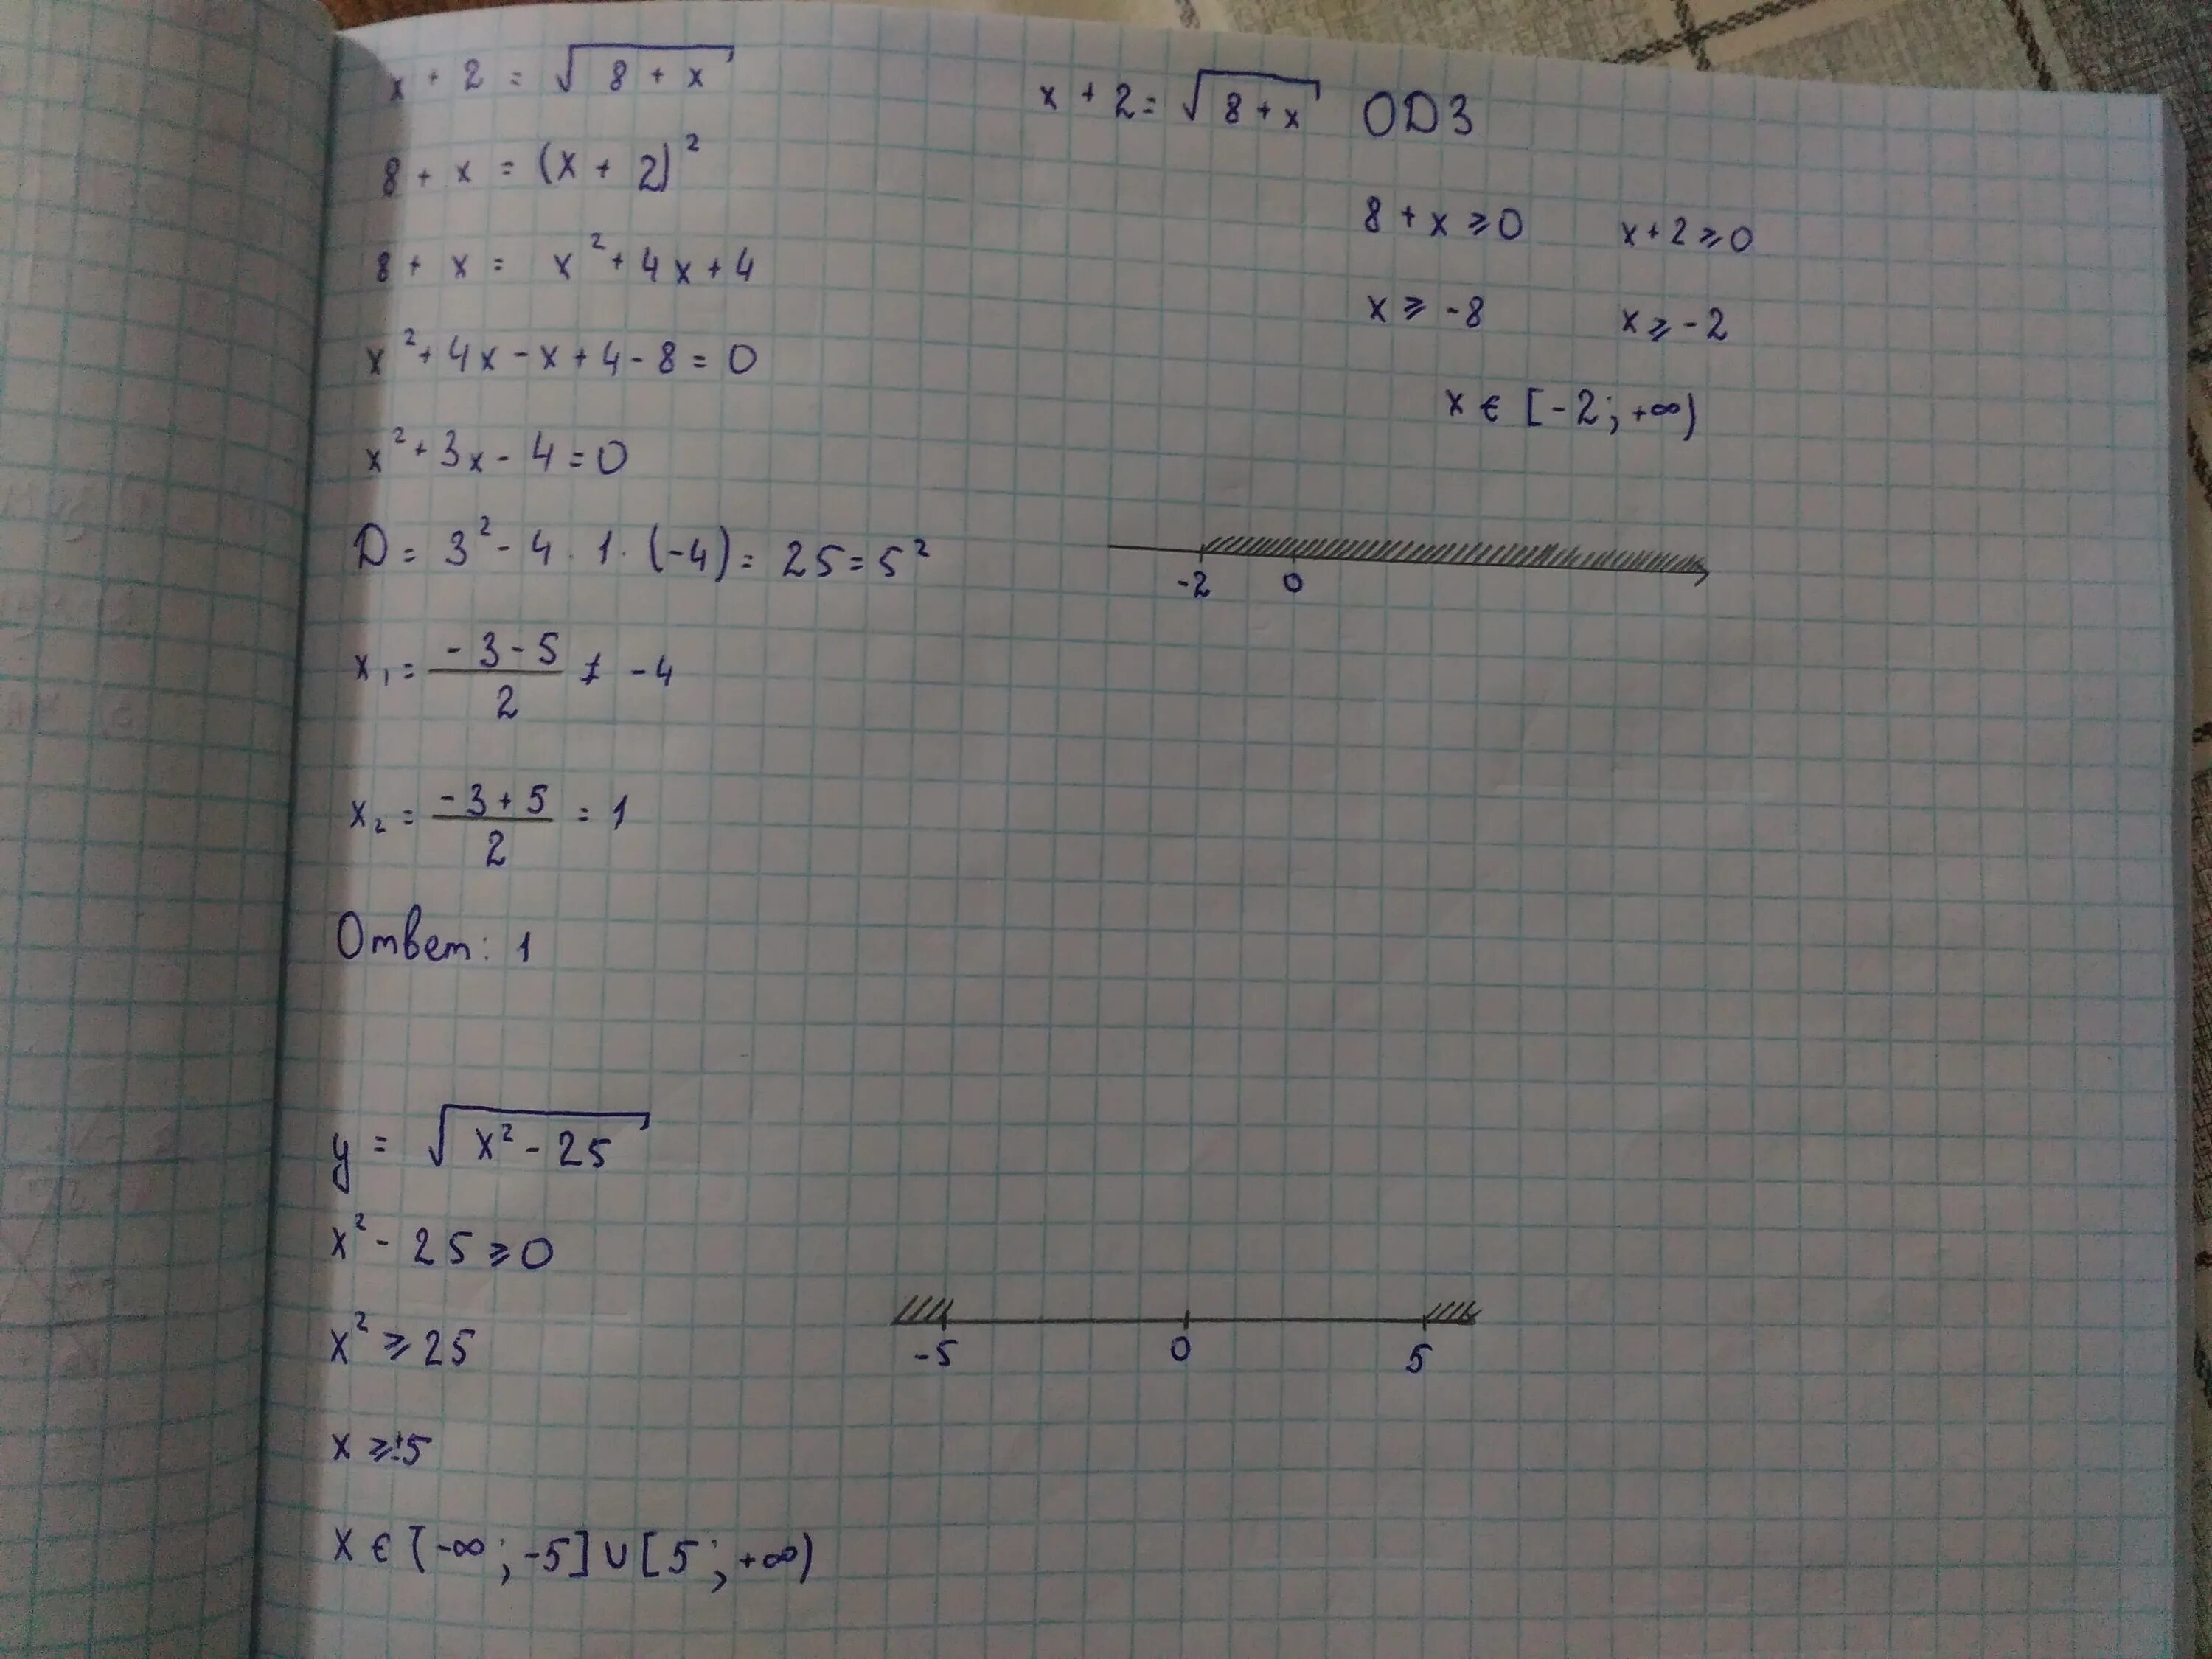 x + 2 = √(8 + x)
8 + x = (x + 2)²
8 + x = x² + 4x + 4
x² + 4x - x + 4 - 8 = 0
x² + 3x - 4 = 0
D = 3² - 4 · 1 · (-4) = 25 = 5²
x₁ = (-3 - 5)/2 ≠ -4
x₂ = (-3 + 5)/2 = 1
Ответ: 1
x + 2 = √(8 + x) ОДЗ
8 + x ⩾ 0 x + 2 ⩾ 0
x ⩾ -8 x ⩾ -2
x ∈ [-2; +∞)
-2 0
y = √(x² - 25)
x² - 25 ⩾ 0
x² ⩾ 25
x ⩾ ±5
x ∈ (-∞; -5] ∪ [5; +∞)
-5 0 5